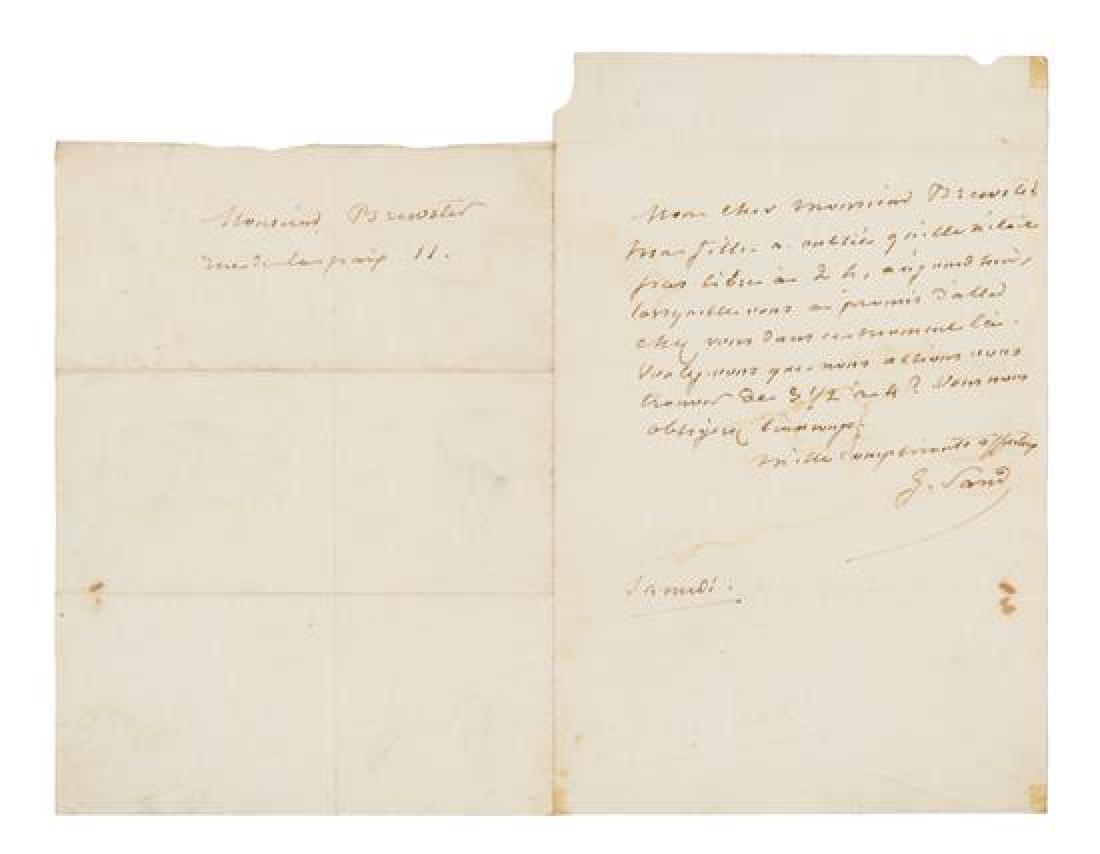 Monsieur Brewster
rue de la paix 11.
Mon cher monsieur Brewster
ma fille a oublié qu'elle n'était
pas libre à 2 h. aujourd'hui,
lorsqu'elle vous a promis d'aller
chez vous dans ce moment là.
Voulez vous que nous allions vous
trouver de 3 1/2 à 4 ? Vous nous
obligerez beaucoup.
Mille compliments affectueux
G. Sand
Samedi.